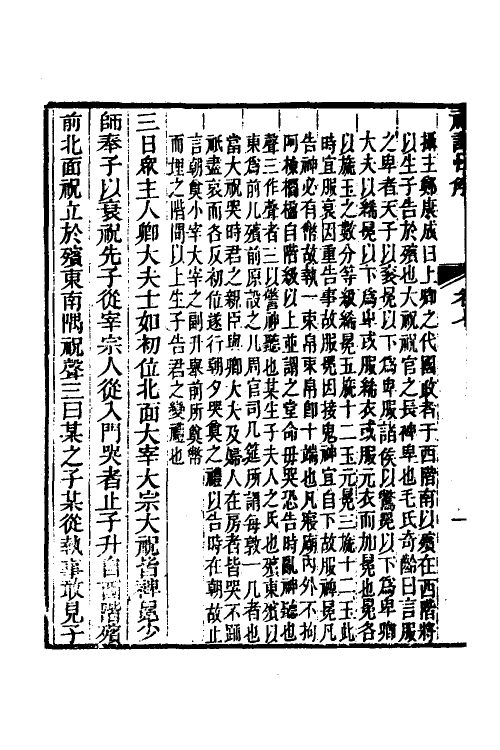 攝主鄭康成曰上卿之代國政者于西階南以殯在西階將
以生子告於殯也大祝祝官之長裨卑也毛氏奇齡曰言服
之卑者天子以袞冕以下為卑服諸侯以鷩冕以下為卑卿
大夫以絺冕以下為卑或服絺衣或服元衣而加冕也冕各
以旒玉之數分等級絺冕玉旒十二玉元冕三旒十二玉此
時宜服衰因重告事故服冕因接鬼神宜自下故服裨冕凡
告神必有幣故執一束帛束帛卽十端也凡殯廟內外不拘
阿棟楣檐自階級以上並謂之堂命毋哭恐告時亂神聽也
聲三作聲者三以警神聽也某生子夫人之氏也殯東殯以
東為前几殯前原設之几周官司几筵所謂每敦一几者也
當大祝哭時君之親臣與卿大夫及婦人在房者皆哭不踊
祇盡哀而各反初位遂行朝夕哭奠之禮以告時在朝故止
言朝奠小宰大宰之副升舉前所奠幣
而埋之階間以上生子告君之變禮也
三日眾主人卿大夫士如初位北面大宰大宗大祝皆裨冕少
師奉子以衰祝先子從宰宗人從入門哭者止子升自西階殯
前北面祝立於殯東南隅祝聲三曰某之子某從執事敢見子
卷七
一